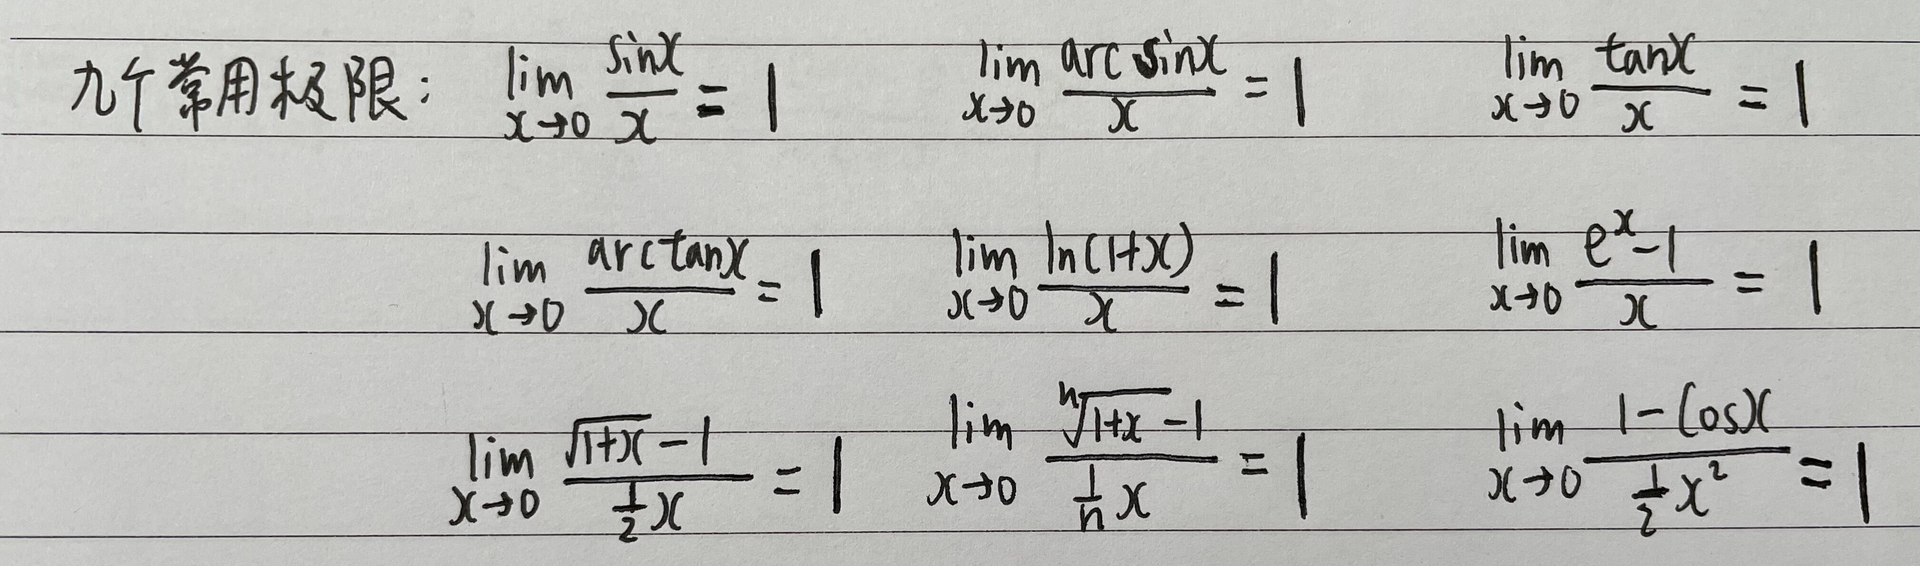 九个常用极限: $\lim_{x \to 0} \frac{\sin x}{x} = 1$ $\lim_{x \to 0} \frac{\arcsin x}{x} = 1$ $\lim_{x \to 0} \frac{\tan x}{x} = 1$
$\lim_{x \to 0} \frac{\arctan x}{x} = 1$ $\lim_{x \to 0} \frac{\ln(1+x)}{x} = 1$ $\lim_{x \to 0} \frac{e^x - 1}{x} = 1$
$\lim_{x \to 0} \frac{\sqrt{1+x} - 1}{\frac{1}{2}x} = 1$ $\lim_{x \to 0} \frac{\sqrt[n]{1+x} - 1}{\frac{1}{n}x} = 1$ $\lim_{x \to 0} \frac{1 - \cos x}{\frac{1}{2}x^2} = 1$